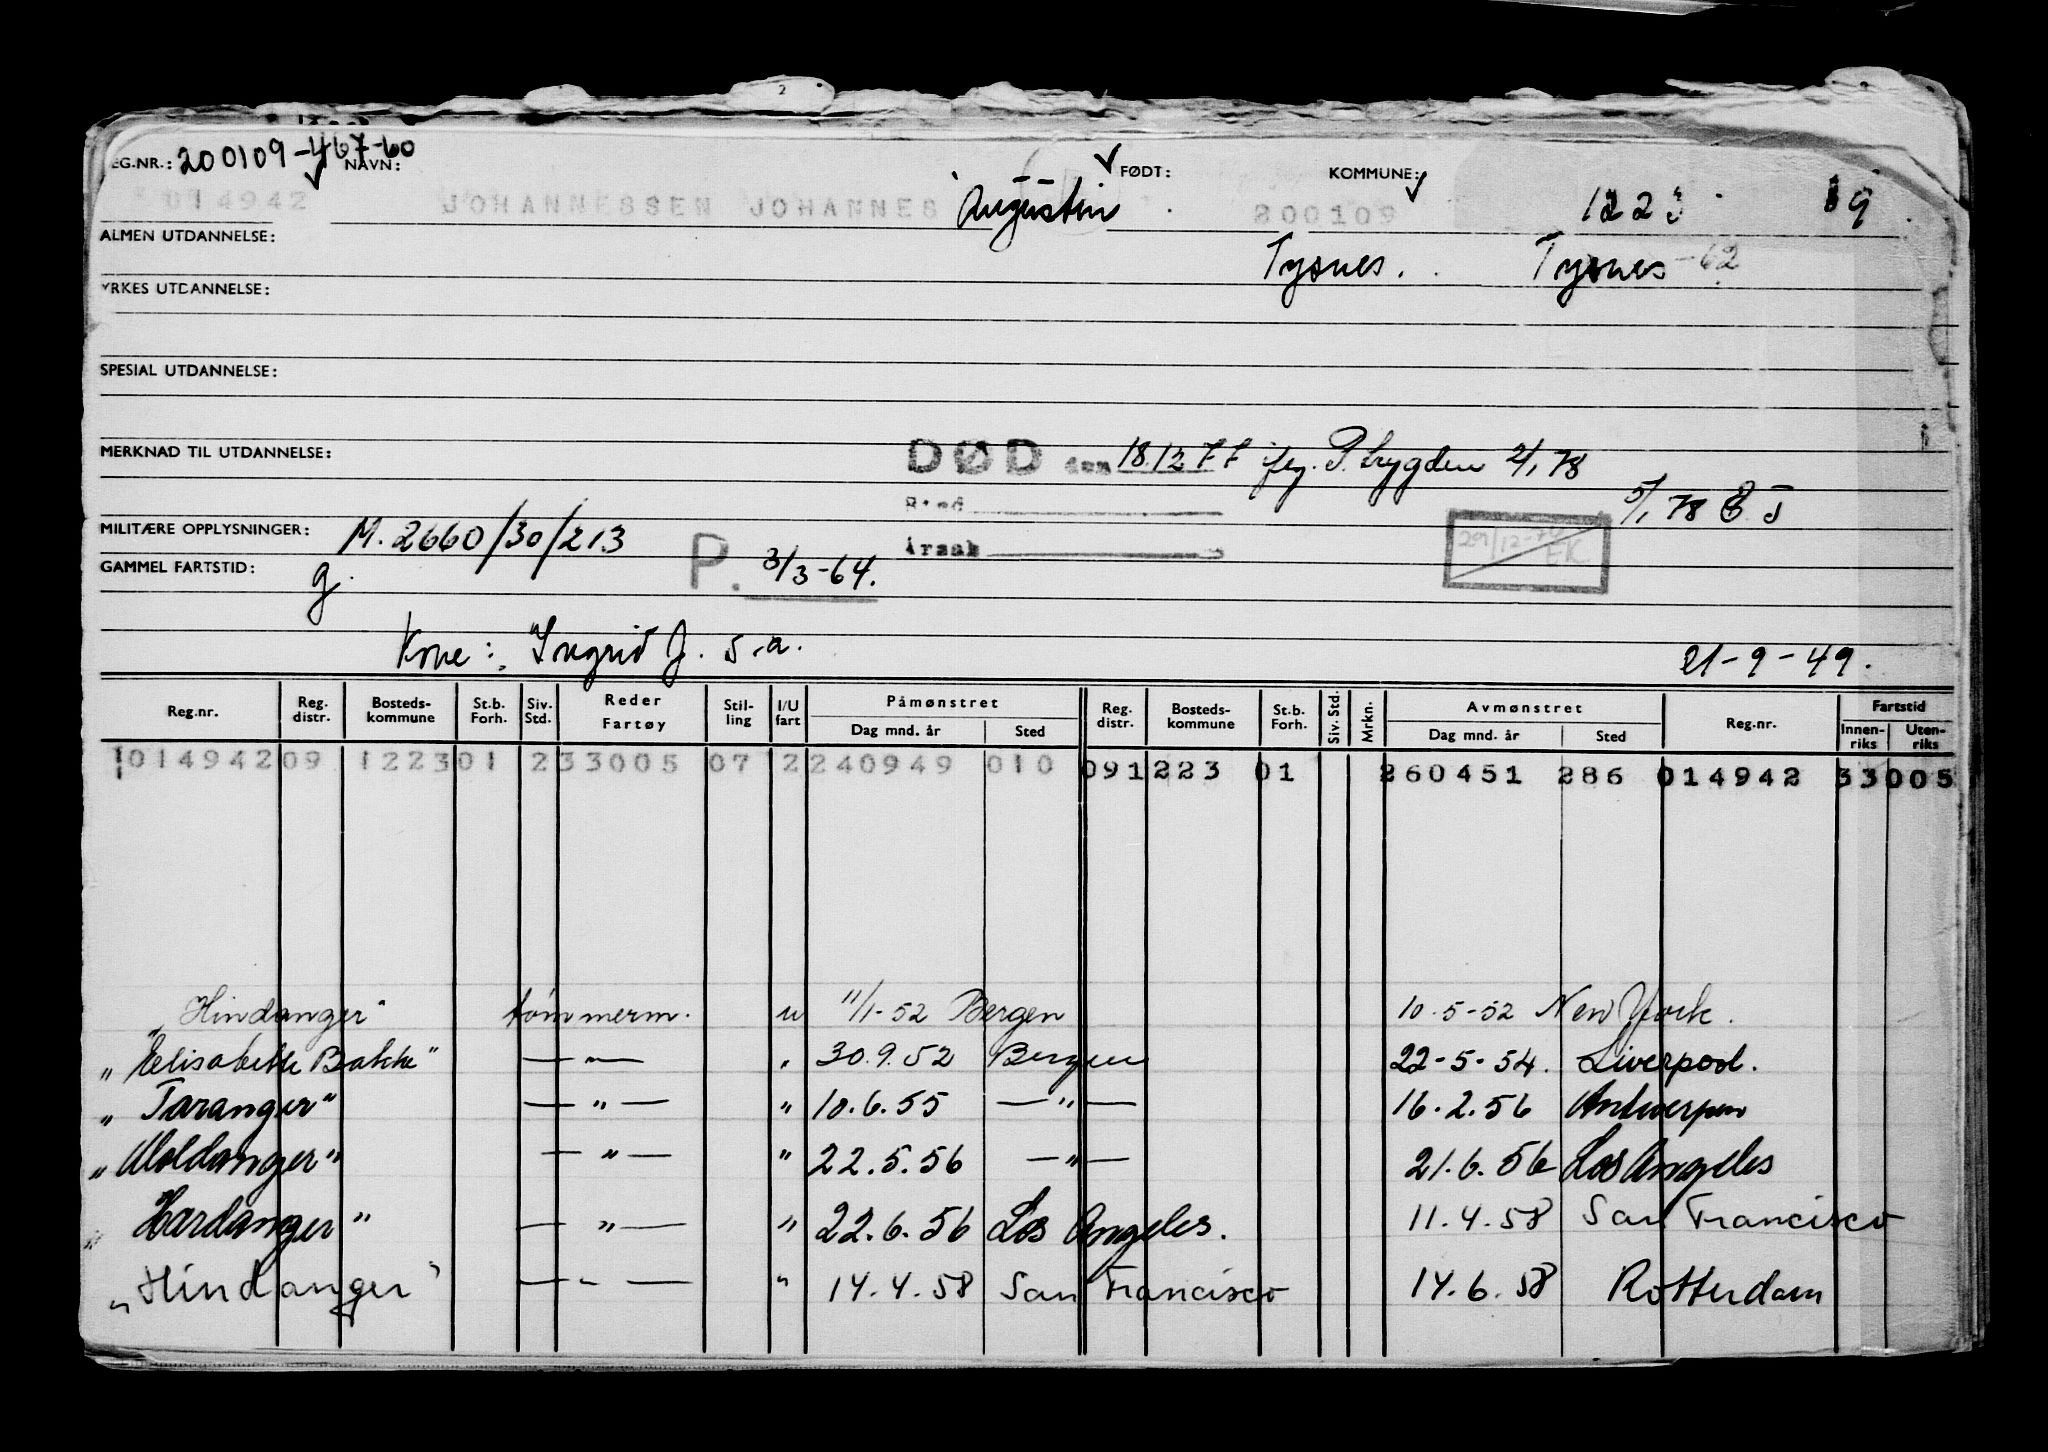 2
REG.NR.: 200109-467-60 NAVN: FØDT: KOMMUNE:
014942 JOHANNESSEN JOHANNES Augustin 200109 1223 19
ALMEN UTDANNELSE: Tysnes. Tysnes-62
YRKES UTDANNELSE:
SPESIAL UTDANNELSE:
MERKNAD TIL UTDANNELSE: DØD den 18.12.77 P. trygden 2/1 78
Sted 5/1 78 EJ
MILITÆRE OPPLYSNINGER: M. 2660/30/213 Årsak
GAMMEL FARTSTID: g. P. 3/3-64.
Kone: Ingrid J. s.a. 21-9-49.
Reg.nr. Reg. distr. Bosteds- kommune St.b. Forh. Siv. Std. Reder Fartøy Stil- ling I/U fart Påmønstret Dag mnd. år Sted Reg. distr. Bosteds- kommune St.b. Forh. Siv. Std. Mrkn. Avmønstret Dag mnd. år Sted Reg.nr. Fartstid Innen- riks Uten- riks
014942 09 1223 01 2 33005 07 2 240949 010 09 1223 01 260451 286 014942 33005
"Hindanger" tømmerm. u 11/1-52 Bergen 10-5-52 New York.
"Elisabeth Bakke" —"— " 30.9.52 Bergen 22-5-54. Liverpool.
"Taranger" —"— " 10.6.55 —"— 16.2.56 Antwerpen
"Moldanger" —"— " 22.5.56 —"— 21.6.56 Los Angeles
"Hardanger" —"— " 22.6.56 Los Angeles. 11.4.58 San Francisco
"Hindanger" —"— " 14.4.58 San Francisco 14.6.58 Rotterdam